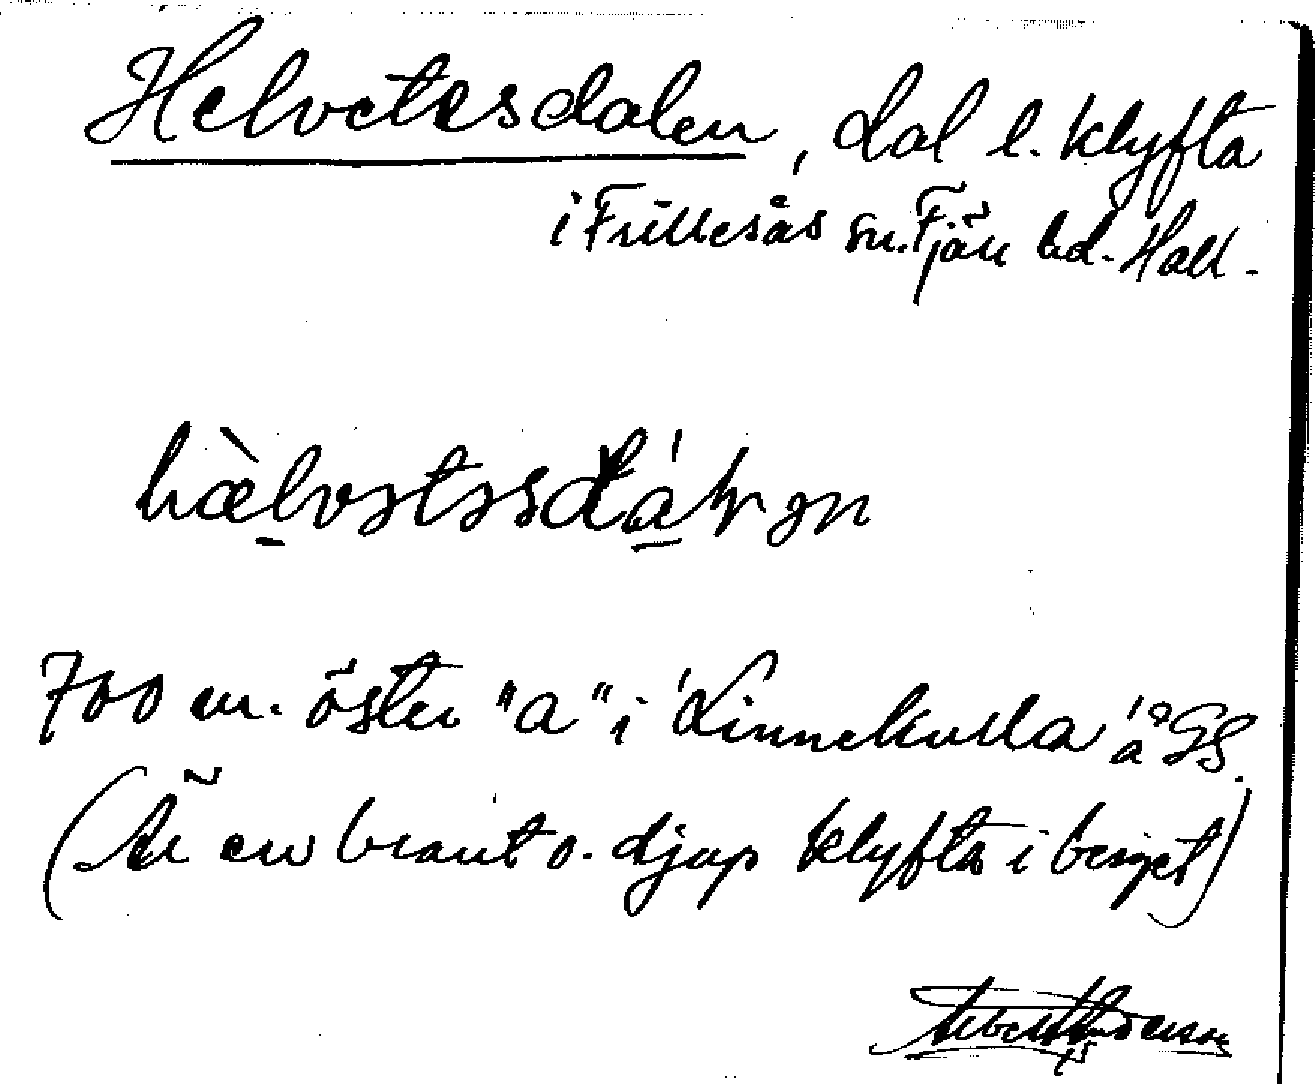 Helvetesdalen, dal l. klyfta
i Frillesås sn. Fjäre hd. Hall.
hæ̀lvətəsdá
700 m. öster "a" i Linnekulla å GS.
(Är en brant o. djup klyfta i berget)